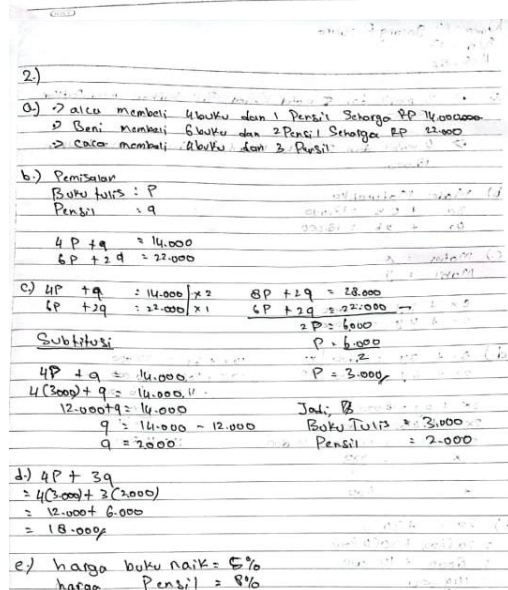 2.)
a.) → alca membeli 4 buku dan 1 Pensil Seharga RP 14.000,000
→ Beni membeli 6 buku dan 2 Pensil Seharga RP 22.000
→ caca membeli 4 buku dan 3 Pensil
b.) Pemisalan
Buku tulis : P
Pensil : q
4P + q = 14.000
6P + 2q = 22.000
c.) 4P + q : 14.000 | x 2 8P + 2q = 28.000
6P + 2q : 22.000 | x 1 6P + 2q = 22.000 -
2P = 6000
Subtitusi P = 6.000
2
4P + q = 14.000 P = 3.000
4(3000) + q = 14.000
12.000 + q = 14.000 Jadi,
q = 14.000 - 12.000 Buku Tulis = 3.000
q = 2000 Pensil = 2.000
d.) 4P + 3q
= 4(3.000) + 3(2,000)
= 12.000 + 6.000
= 18.000
e.) harga buku naik = 5%
harga Pensil = 8%